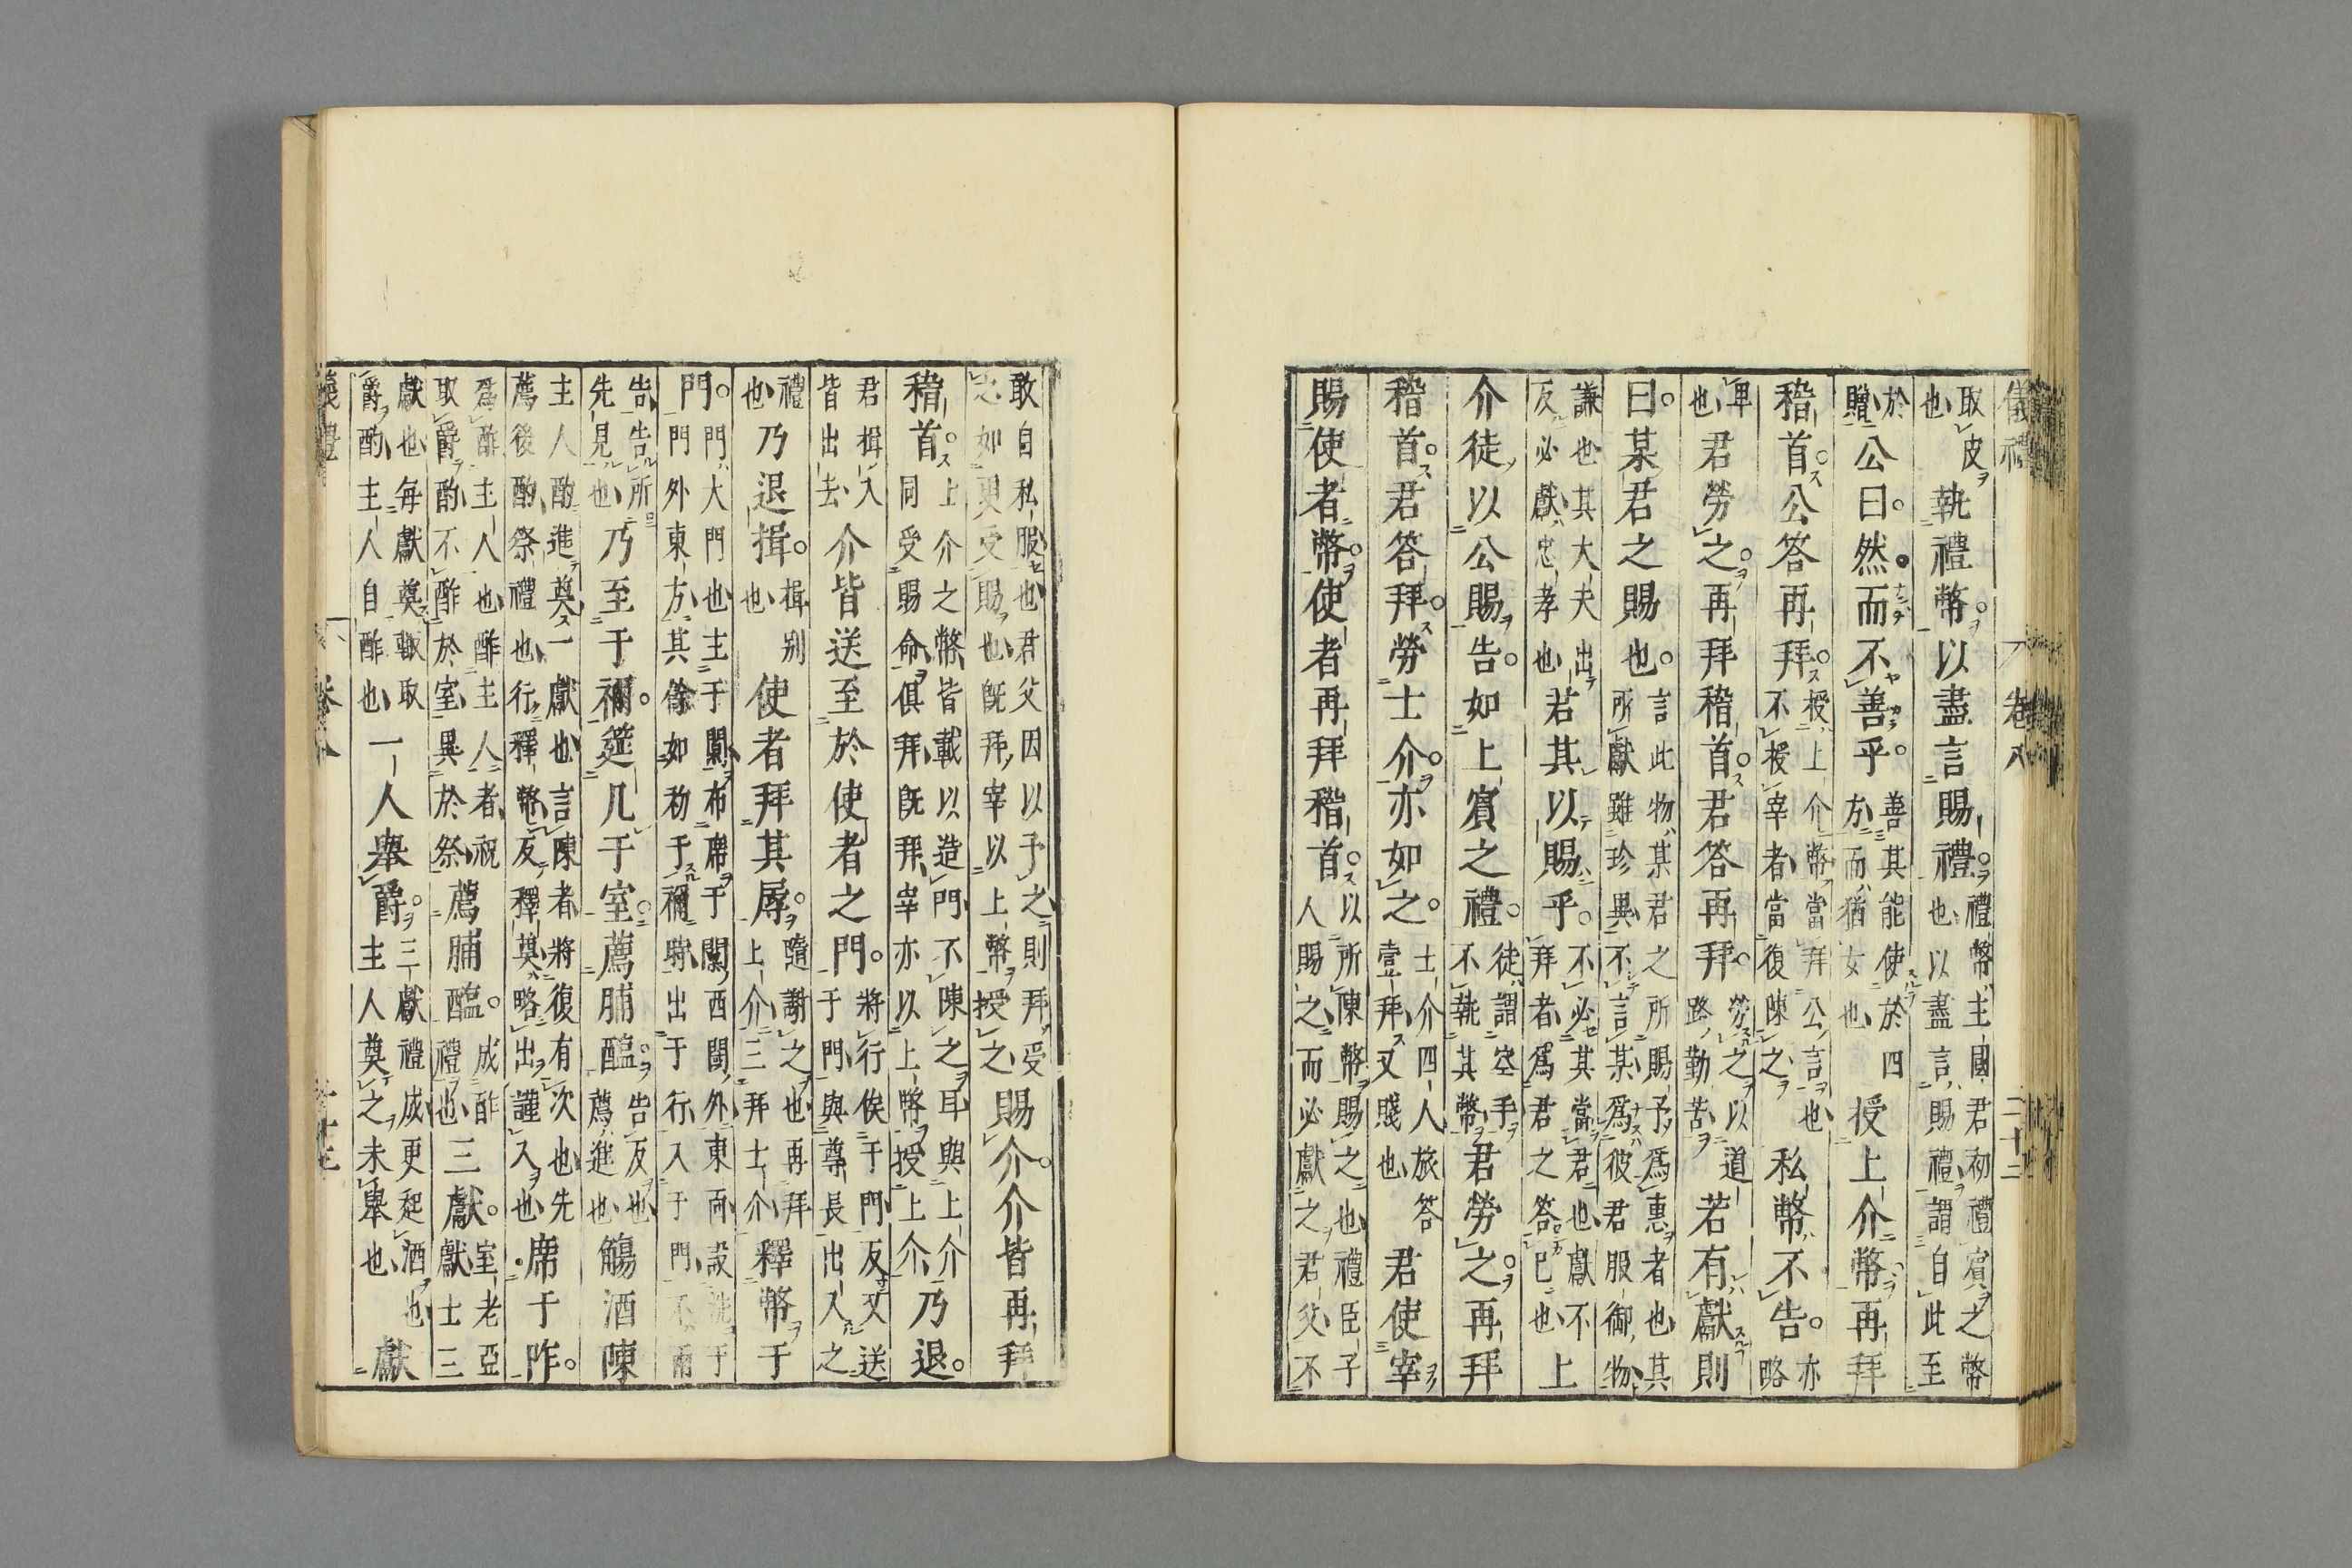 儀禮 卷八 二十二
取皮也執禮幣以盡言賜禮禮幣主國君初禮賓之幣也以盡言賜禮謂自此至
於贈公曰然而不善乎善其能使於四方而猶女也授上介幣再拜
稽首公答再拜授上介幣當拜公言也不授宰者當復陳之私幣不告亦略
卑也君勞之再拜稽首君答再拜勞之以道路勤苦若有獻則
曰某君之賜也言此物某君之所賜予爲惠者也其所獻雖珍異不言某爲彼君服御物
謙也其大夫出反必獻忠孝也君其以賜乎不必其當君也獻不拜者爲君之答已也上
介徒以公賜告如上賓之禮徒謂空手不執其幣君勞之再拜
稽首君答拜勞士介亦如之士介四人旅答壹拜又賤也君使宰
賜使者幣使者再拜稽首以所陳幣賜之也禮臣子人賜之而必獻之君父不
敢自私服也君父因以予之則拜受之如更受賜也既拜宰以上幣授之賜介介皆再拜
稽首上介之幣皆載以造門不陳之耳與上介同受賜命俱拜既拜宰亦以上幣授上介乃退
君揖入皆出去介皆送至於使者之門將行俟于門反又送于門與尊長出入之
禮也乃退揖揖別也使者拜其辱隨謝之也再拜上介三拜士介釋幣于
門門大門也主于闑布席于闑西閾外東面設洗于門外東方其餘如初于禰時出于行入于門不兩
告告所先見也乃至于禰筵几于室薦脯醢告反也薦進也觴酒陳
主人酌進奠一獻也言陳者將復有次也先薦後酌祭禮也行釋幣反釋奠略出謹入也席于阼
爲酢主人也酢主人者祝取爵酌不酢於室異於祭薦脯醢成酢禮也三獻室老亞獻士三
獻也每獻奠輒取爵酌主人自酢也一人舉爵三獻禮成更起酒也主人奠之未舉也獻